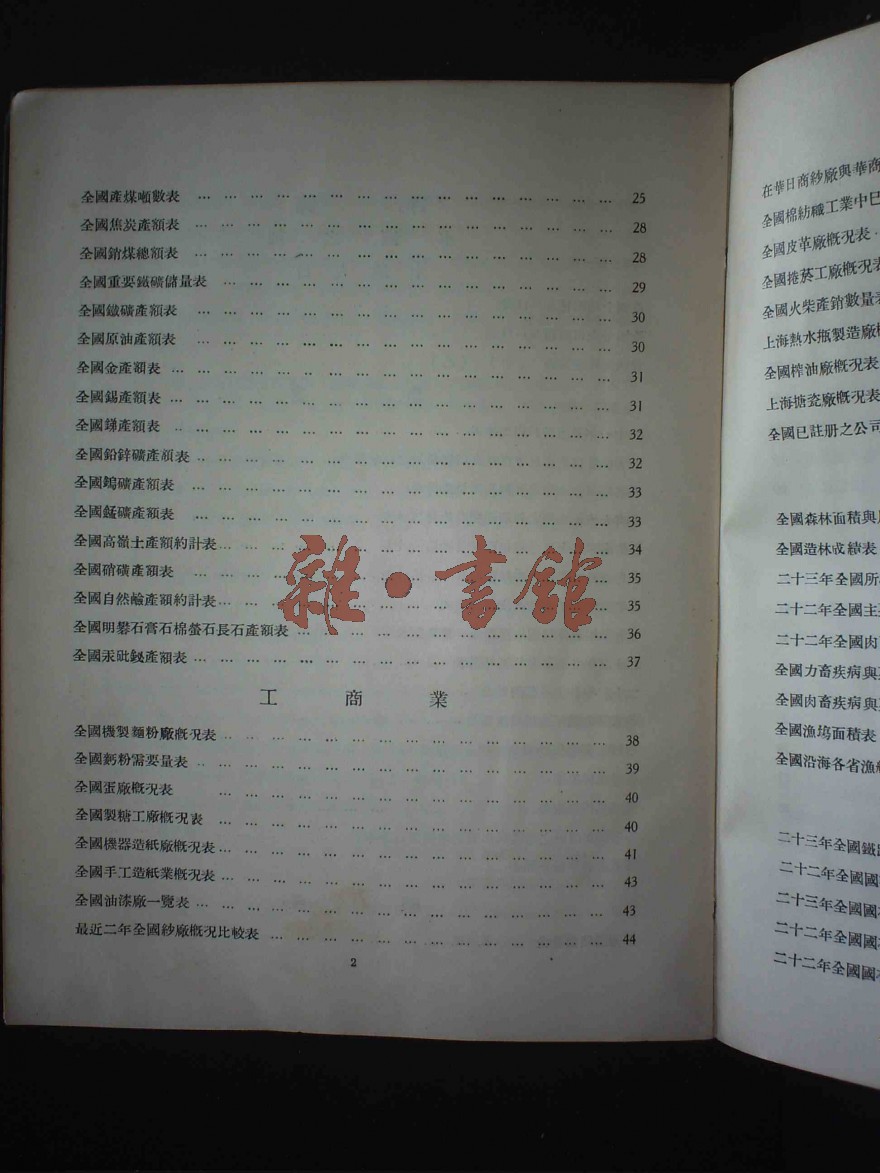 全國產煤噸數表 … … … … … … … … … … … … … … … … 25
全國焦炭產額表 … … … … … … … … … … … … … … … … 28
全國銷煤總額表 … … … … … … … … … … … … … … … … 28
全國重要鐵礦儲量表 … … … … … … … … … … … … … … … 29
全國鐵礦產額表 … … … … … … … … … … … … … … … … 30
全國原油產額表 … … … … … … … … … … … … … … … … 30
全國金產額表 … … … … … … … … … … … … … … … … … 31
全國錫產額表 … … … … … … … … … … … … … … … … … 31
全國銻產額表 … … … … … … … … … … … … … … … … … 32
全國鉛鋅礦產額表 … … … … … … … … … … … … … … … … 32
全國鎢礦產額表 … … … … … … … … … … … … … … … … 33
全國錳礦產額表 … … … … … … … … … … … … … … … … 33
全國高嶺土產額約計表 … … … … … … … … … … … … … … … 34
全國硝磺產額表 … … … … … … … … … … … … … … … … 35
全國自然鹼產額約計表 … … … … … … … … … … … … … … … 35
全國明礬石膏石棉螢石長石產額表 … … … … … … … … … … … … 36
全國汞砒鉍產額表 … … … … … … … … … … … … … … … … 37
工商業
全國機製麵粉廠概況表 … … … … … … … … … … … … … … … 38
全國麪粉需要量表 … … … … … … … … … … … … … … … … 39
全國蛋廠概況表 … … … … … … … … … … … … … … … 40
全國製糖工廠概況表 … … … … … … … … … … … … … … … 40
全國機器造紙廠概況表 … … … … … … … … … … … … … … … 41
全國手工造紙業概況表 … … … … … … … … … … … … … … … 43
全國油漆廠一覽表 … … … … … … … … … … … … … … … … 43
最近二年全國紗廠概況比較表 … … … … … … … … … … … … … 44
2
在華日商紗廠與華商
全國棉紡織工業中
全國皮革廠概況表
全國捲菸工廠概況表
全國火柴產銷數量表
上海熱水瓶製造廠概
全國榨油廠概況表
上海搪瓷廠概況表
全國已註册之公司
全國森林面積與
全國造林成績表
二十三年全國所
二十二年全國主要
二十二年全國肉
全國力畜疾病與
全國肉畜疾病與
全國漁塲面積表
全國沿海各省漁
二十三年全國鐵
二十二年全國國
二十三年全國國
二十二年全國國
二十二年全國國
雜·書館